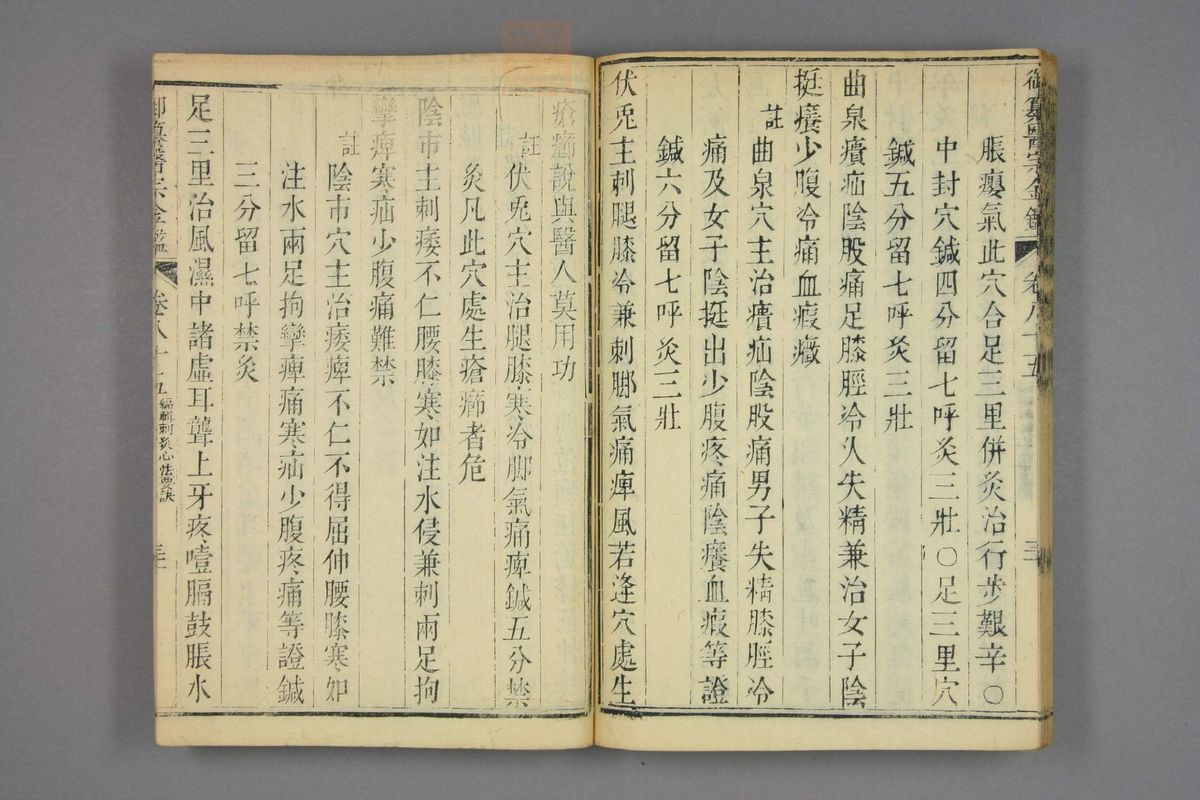 御纂醫宗金鑑 卷八十五
脹癭氣此穴合足三里併灸治行步艱辛○
中封穴鍼四分留七呼灸三壯○足三里穴
鍼五分留七呼灸三壯
曲泉㿉疝陰股痛足膝脛冷久失精兼治女子陰
挺癢少腹冷痛血瘕癥
註曲泉穴主治㿉疝陰股痛男子失精膝脛冷
痛及女子陰挺出少腹疼痛陰癢血瘕等證
鍼六分留七呼灸三壯
伏兎主刺腿膝冷兼刺脚氣痛痺風若逢穴處生
瘡癤說與醫人莫用功
註伏兎穴主治腿膝寒冷脚氣痛痺鍼五分禁
灸凡此穴處生瘡癤者危
陰市主刺痿不仁腰膝寒如注水侵兼刺兩足拘
攣痺寒疝少腹痛難禁
註陰市穴主治痿痺不仁不得屈伸腰膝寒如
注水兩足拘攣痺痛寒疝少腹疼痛等證鍼
三分留七呼禁灸
足三里治風濕中諸虛耳聾上牙疼噎膈鼓脹水
御纂醫宗金鑑 卷八十五 編輯刺灸心法要訣